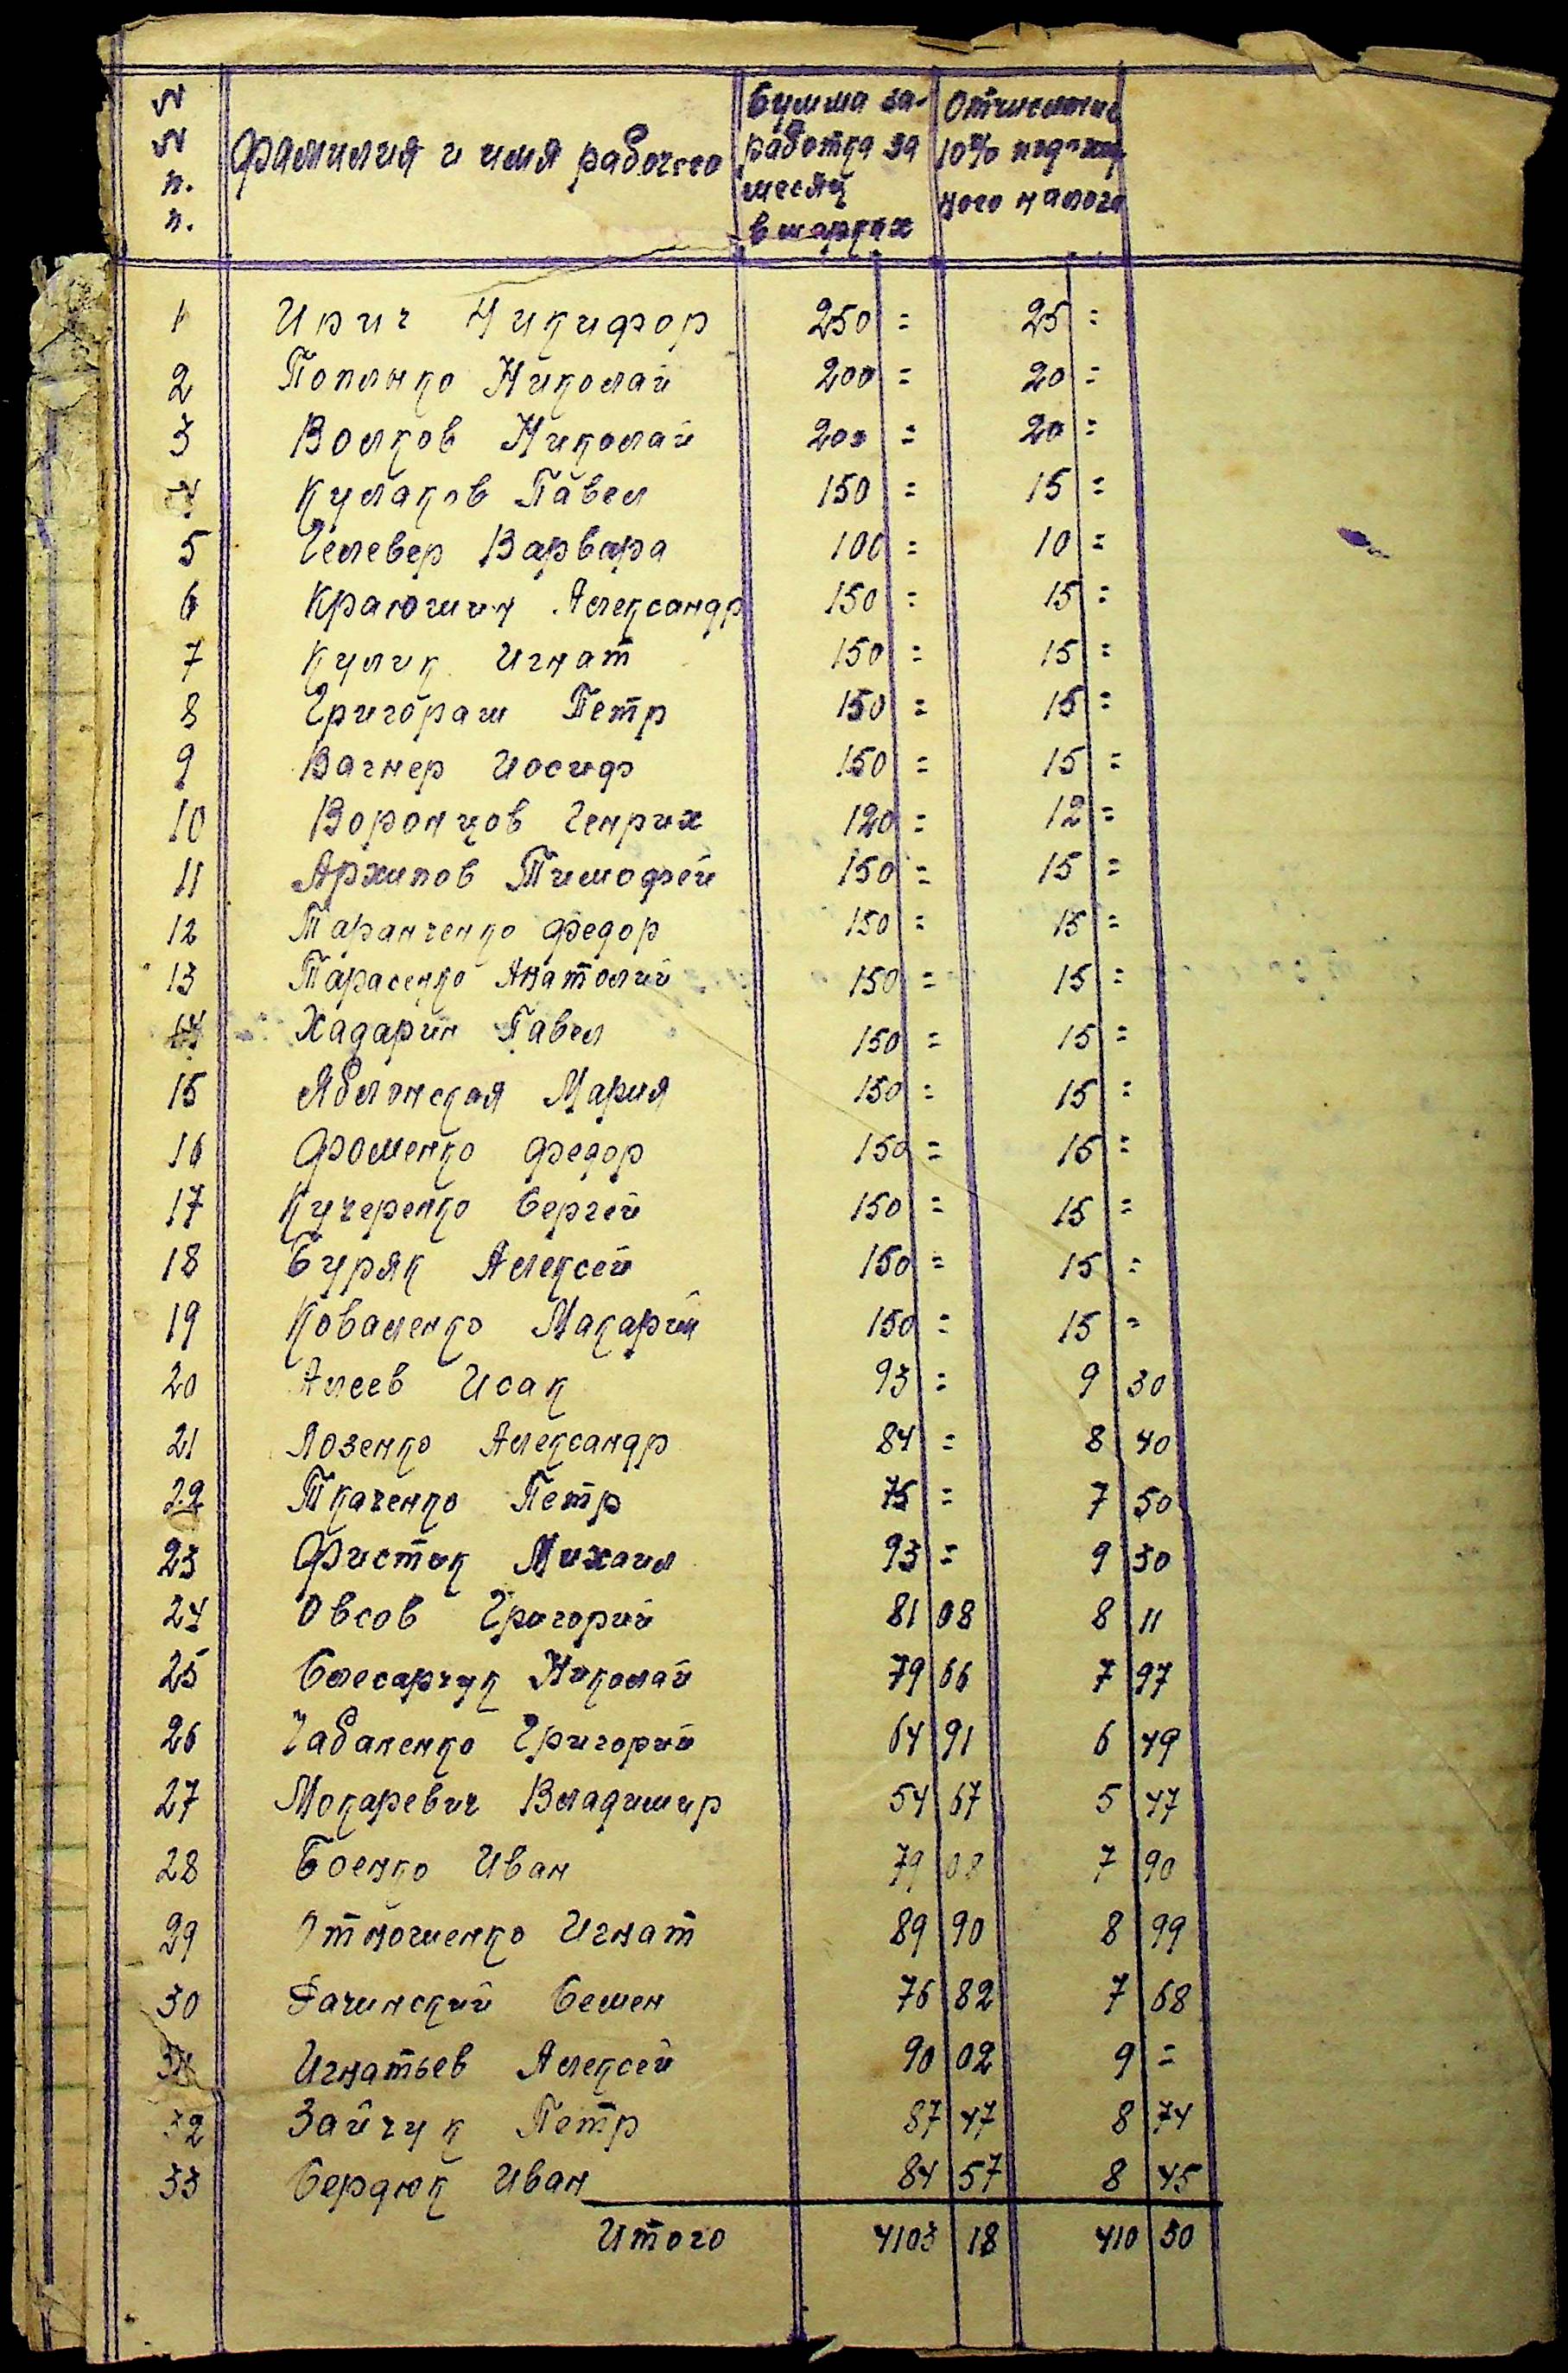 № № п. п. Фамилия и имя рабочего Сумма заработка за месяц в марках Отчисление 10% подоходного налога
1 Ирич Никифор 250 = 25 =
2 Попенко Николай 200 = 20 =
3 Волков Николай 200 = 20 =
4 Кулаков Павел 150 = 15 =
5 Гелевер Варвара 100 = 10 =
6 Краюшин Александр 150 = 15 =
7 Кулик Игнат 150 = 15 =
8 Григораш Петр 150 = 15 =
9 Вагнер Иосиф 150 = 15 =
10 Воронцов Генрих 120 = 12 =
11 Архипов Тимофей 150 = 15 =
12 Таранченко Федор 150 = 15 =
13 Тарасенко Анатолий 150 = 15 =
14 Хадарин Павел 150 = 15 =
15 Яблонская Мария 150 = 15 =
16 Фоменко Федор 150 = 15 =
17 Кучеренко Сергей 150 = 15 =
18 Буряк Алексей 150 = 15 =
19 Коваленко Макарий 150 = 15 =
20 Алеев Исак 93 = 9 30
21 Лозенко Александр 84 = 8 40
22 Ткаченко Петр 75 = 7 50
23 Фистик Михаил 93 = 9 30
24 Овсов Григорий 81 08 8 11
25 Слесарчук Николай 79 66 7 97
26 Григорий 64 91 6 49
27 Мокаревич Владимир 54 67 5 47
28 Боенко Иван 79 08 7 90
29 Игнат 89 90 8 99
30 Семен 76 82 7 68
31 Игнатьев Алексей 90 02 9 =
32 Зайчук Петр 87 47 8 74
33 Сердюк Иван 84 57 8 45
Итого 4103 18 410 30